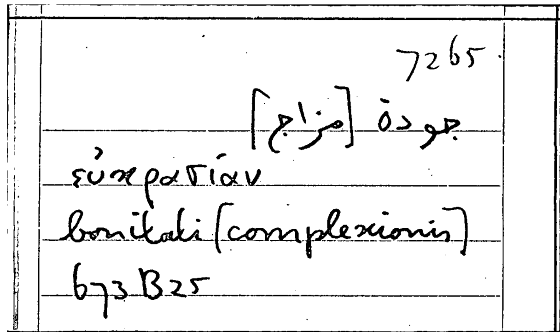 7265
جودة [مزاج]
εὐκρατίαν
bonitati [complexionis]
673 B 25